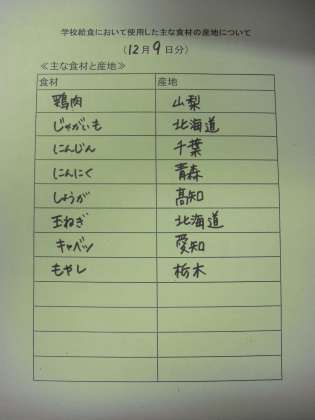 学校給食において使用した主な食材の産地について
（12月9日分）
≪主な食材と産地≫
食材 産地
鶏肉 山梨
じゃがいも 北海道
にんじん 千葉
にんにく 青森
しょうが 高知
玉ねぎ 北海道
キャベツ 愛知
もやし 栃木